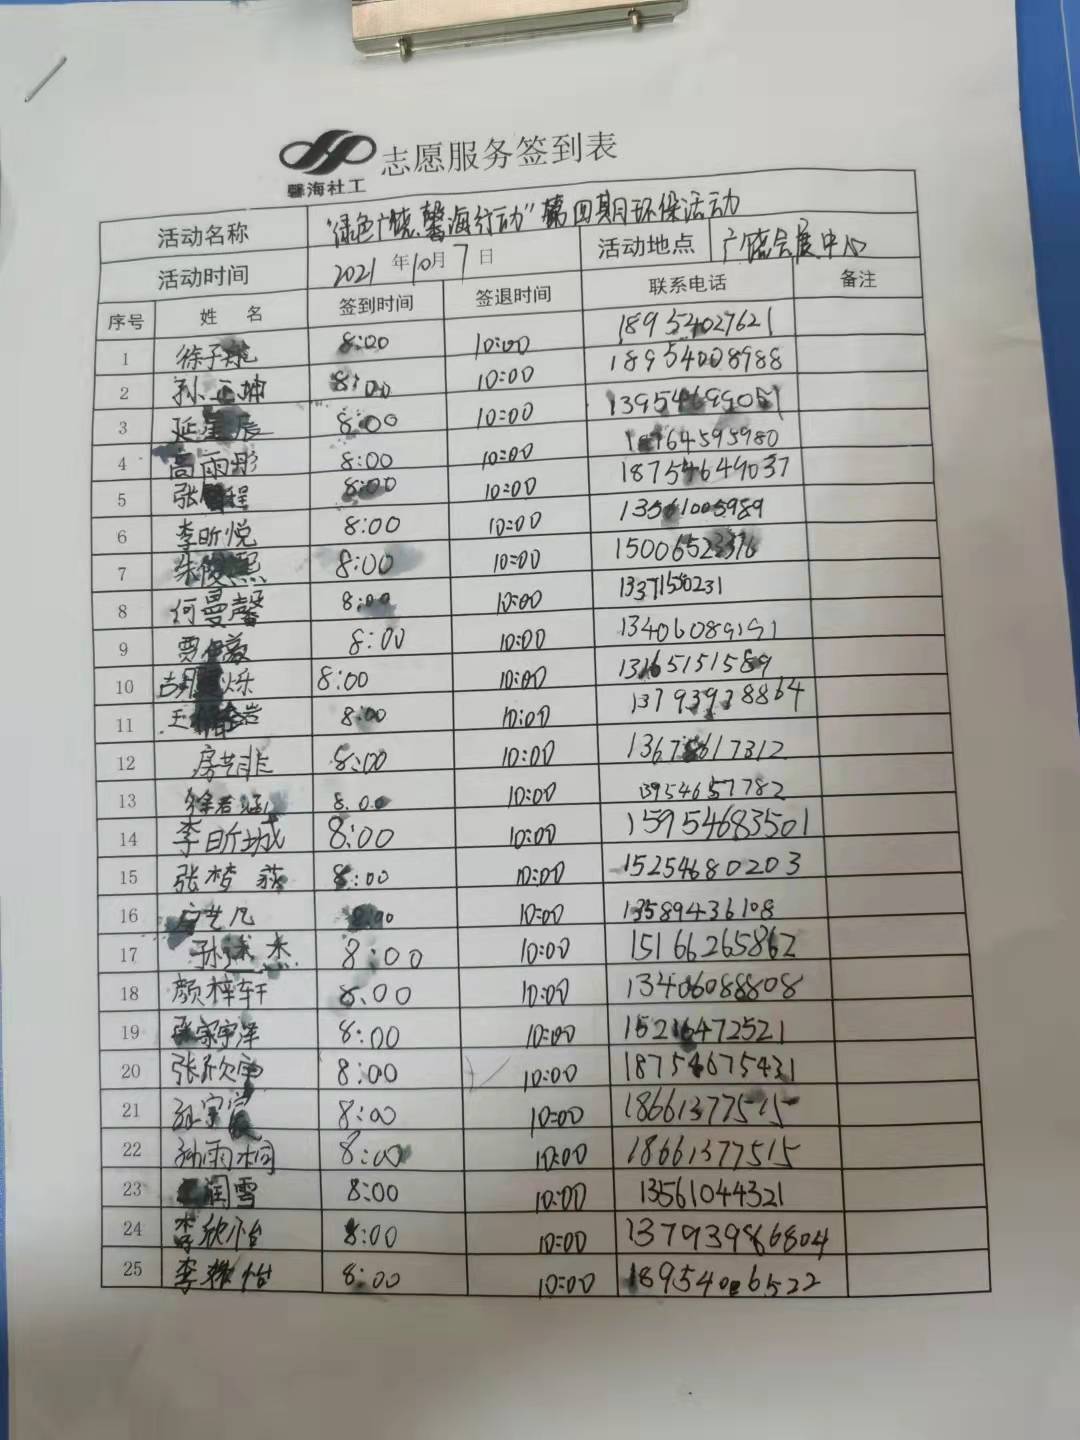 馨海社工
志愿服务签到表
活动名称 "绿色广饶 馨海行动"第四期环保活动
活动时间 2021年10月7日 活动地点 广饶会展中心
序号 姓 名 签到时间 签退时间 联系电话 备注
1 徐子 8:00 10:00 18954027621
2 孙 坤 8:00 10:00 18954008988
3 延 辰 8:00 10:00 13954699051
4 高雨彤 8:00 10:00 18764595980
5 张 程 8:00 10:00 18754649037
6 李昕悦 8:00 10:00 13561005989
7 朱俊熙 8:00 10:00 15006523376
8 何曼馨 8:00 10:00 13371580231
9 贾 8:00 10:00 13406089191
10 烁 8:00 10:00 13165151589
11 王 岩 8:00 10:00 13793938864
12 房艺非 8:00 10:00 13678617312
13 徐若涵 8:00 10:00 13954657782
14 李昕城 8:00 10:00 15954683501
15 张梦荻 8:00 10:00 15254680203
16 艺凡 8:00 10:00 13589436108
17 孙 杰 8:00 10:00 15166265862
18 颜梓轩 8:00 10:00 13406088808
19 张家宇泽 8:00 10:00 15216472521
20 张欣 8:00 10:00 18754675431
21 8:00 10:00 18661377515
22 孙雨桐 8:00 10:00 18661377515
23 润雪 8:00 10:00 13561044321
24 李欣怡 8:00 10:00 137939866804
25 李 怡 8:00 10:00 18954006522